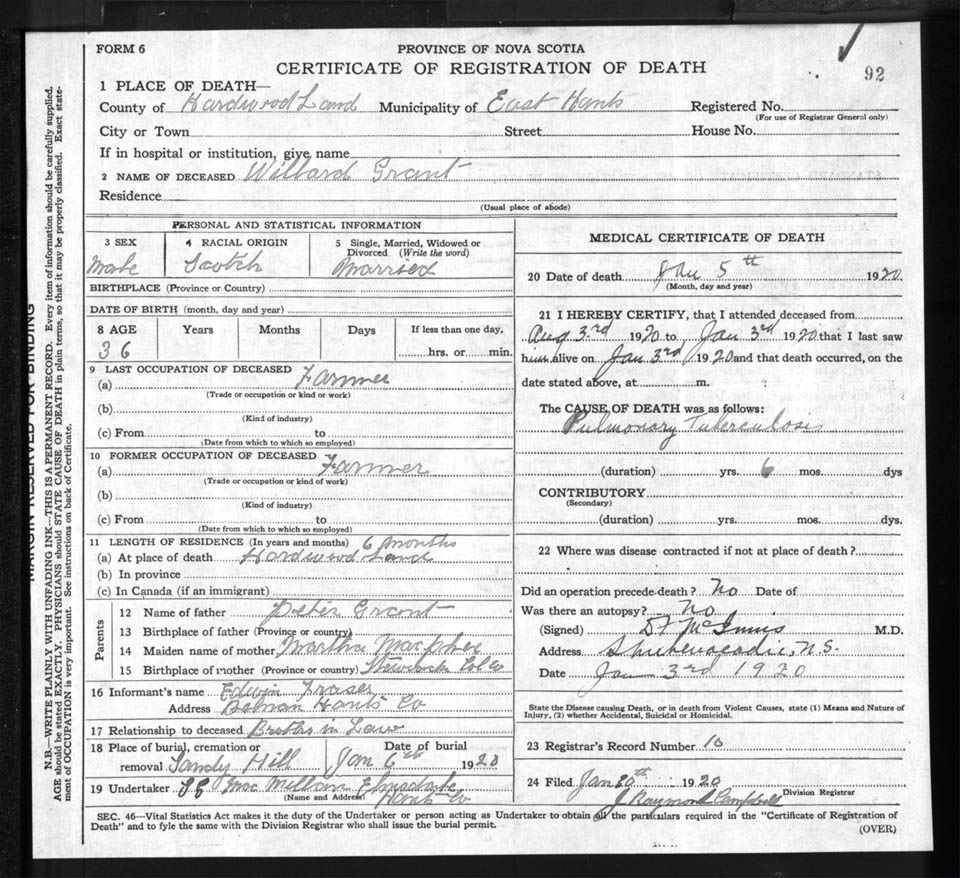 FORM 6
PROVINCE OF NOVA SCOTIA
CERTIFICATE OF REGISTRATION OF DEATH
92
1 PLACE OF DEATH—
County of Hardwood Land Municipality of East Hants Registered No.
(For use of Registrar General only)
City or Town Street House No.
If in hospital or institution, give name
2 NAME OF DECEASED Willard Grant
Residence
(Usual place of abode)
PERSONAL AND STATISTICAL INFORMATION
3 SEX 4 RACIAL ORIGIN 5 Single, Married, Widowed or
Divorced (Write the word)
Male Scotch Married
BIRTHPLACE (Province or Country)
DATE OF BIRTH (month, day and year)
8 AGE Years Months Days If less than one day,
36 hrs. or min.
9 LAST OCCUPATION OF DECEASED
(a) Farmer
(Trade or occupation or kind or work)
(b)
(Kind of industry)
(c) From to
(Date from which to which so employed)
10 FORMER OCCUPATION OF DECEASED
(a) Farmer
(Trade or occupation or kind of work)
(b)
(Kind of industry)
(c) From to
(Date from which to which so employed)
11 LENGTH OF RESIDENCE (In years and months) 6 months
(a) At place of death Hardwood Land
(b) In province
(c) In Canada (if an immigrant)
Parents
12 Name of father Peter Grant
13 Birthplace of father (Province or country)
14 Maiden name of mother Martha Macphee
15 Birthplace of mother (Province or country) Stewiacke Col Co
16 Informant's name Edwin Fraser
Address Belnan Hants Co
17 Relationship to deceased Brother in Law
18 Place of burial, cremation or Date of burial
removal Sandy Hill Jan 6th 1920
19 Undertaker McMillan Elmsdale
(Name and Address) Hants Co
MEDICAL CERTIFICATE OF DEATH
20 Date of death Jan 5th 1920
(Month, day and year)
21 I HEREBY CERTIFY, that I attended deceased from
Aug 3rd 1920 to Jan 3rd 1920 that I last saw
him alive on Jan 3rd 1920 and that death occurred, on the
date stated above, at m.
The CAUSE OF DEATH was as follows:
Pulmonary Tuberculosis
(duration) yrs. 6 mos. dys
CONTRIBUTORY
(Secondary)
(duration) yrs. mos. dys.
22 Where was disease contracted if not at place of death?
Did an operation precede death? No Date of
Was there an autopsy? No
(Signed) D F McInnis M.D.
Address Shubenacadie, N.S.
Date Jan 3rd 1920
State the Disease causing Death, or in death from Violent Causes, state (1) Means and Nature of
Injury, (2) whether Accidental, Suicidal or Homicidal.
23 Registrar's Record Number 10
24 Filed Jan 20th 1920
J Raymond Campbell Division Registrar
SEC. 46—Vital Statistics Act makes it the duty of the Undertaker or person acting as Undertaker to obtain all the particulars required in the "Certificate of Registration of
Death" and to fyle the same with the Division Registrar who shall issue the burial permit.
(OVER)
MARGIN RESERVED FOR BINDING
N.B.—WRITE PLAINLY WITH UNFADING INK—THIS IS A PERMANENT RECORD. Every item of information should be carefully supplied.
AGE should be stated EXACTLY. PHYSICIANS should STATE CAUSE OF DEATH in plain terms, so that it may be properly classified. Exact state-
ment of OCCUPATION is very important. See instructions on back of Certificate.